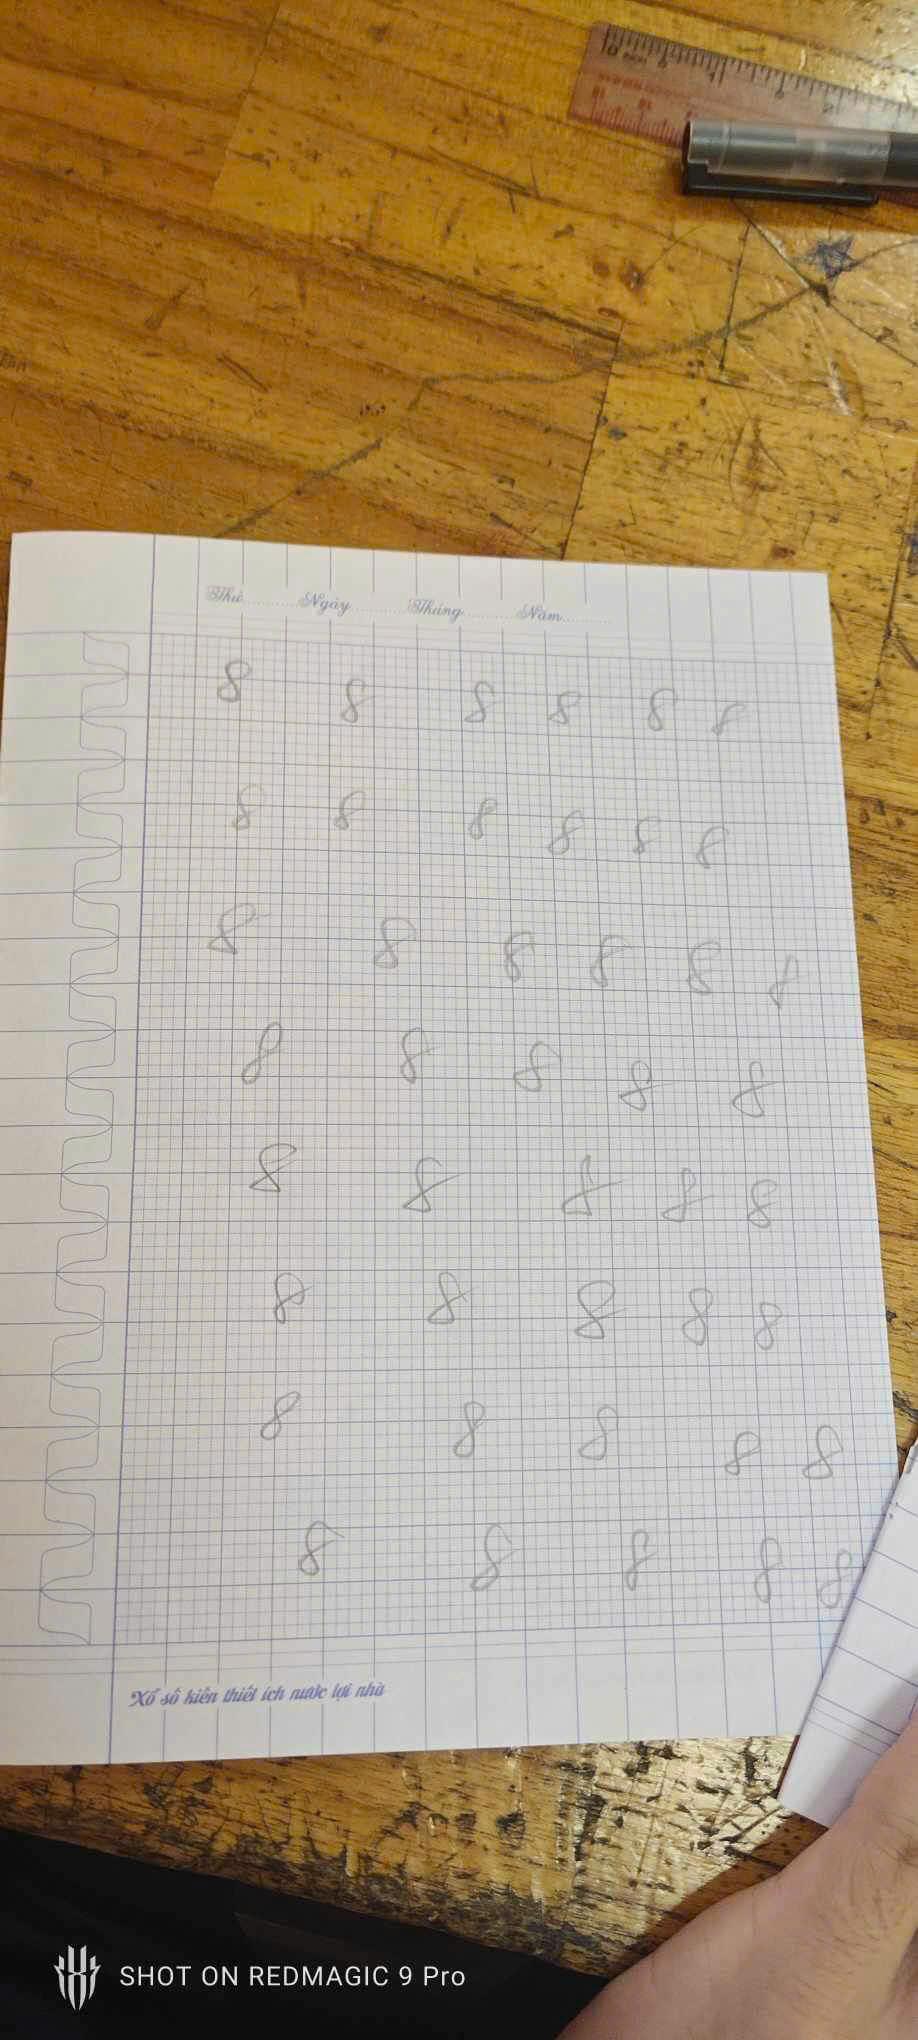 Thứ Ngày Tháng Năm
8 8 8 8 8 8
8 8 8 8 8 8
8 8 8 8 8 8
8 8 8 8 8
8 8 8 8 8
8 8 8 8 8
8 8 8 8 8
8 8 8 8 8
Xổ số kiến thiết ích nước lợi nhà
SHOT ON REDMAGIC 9 Pro